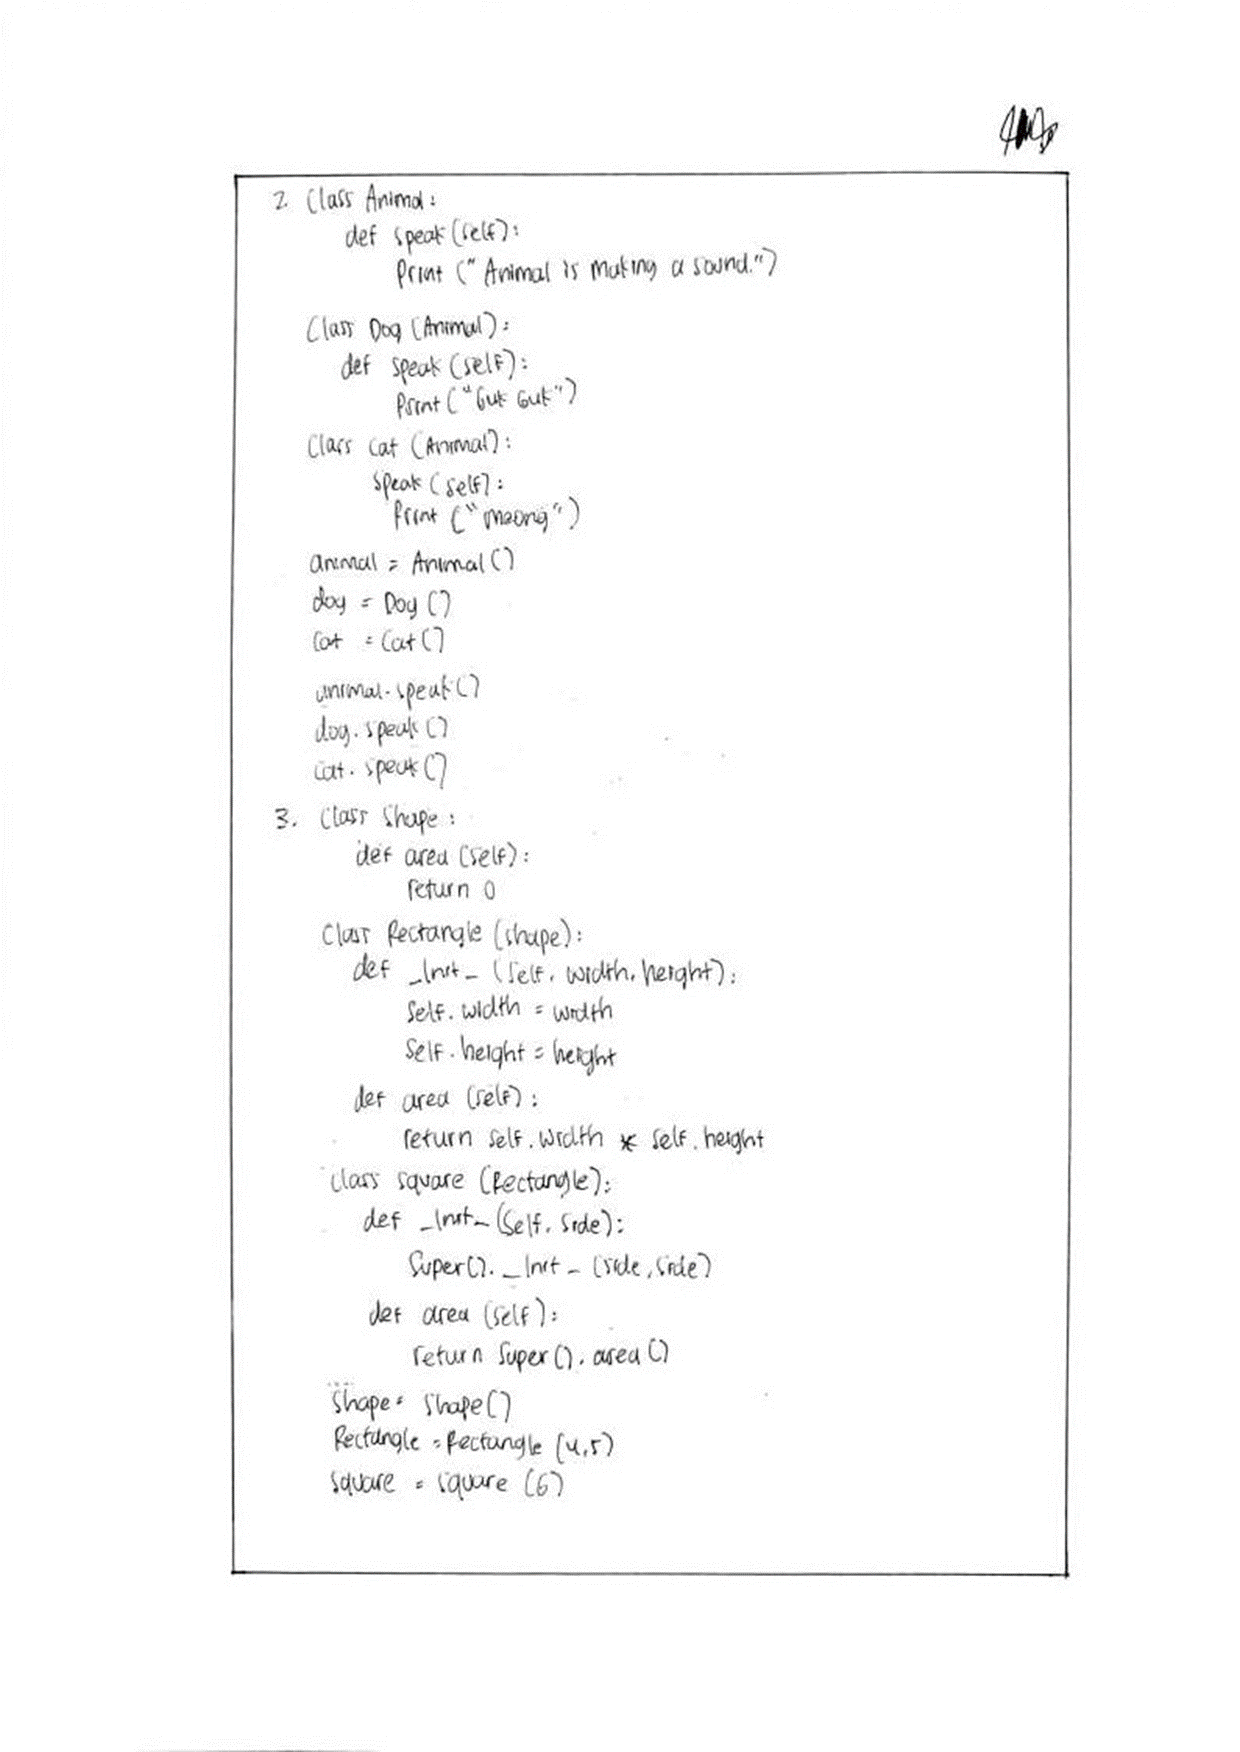 2. Class Animal:
def speak (self):
Print ("Animal is making a sound.")
Class Dog (Animal):
def speak (self):
Print ("Guk Guk")
Class Cat (Animal):
speak (self):
Print ("meong")
animal = Animal ()
dog = Dog ()
Cat = Cat ()
animal.speak ()
dog.speak ()
cat.speak ()
3. Class Shape:
def area (self):
return 0
Class Rectangle (shape):
def _Init_ (self, width, height):
Self.width = width
Self.height = height
def area (self):
return self.width * self.height
Class square (Rectangle):
def _Init_ (self, side):
Super()._Init_ (side, side)
def area (self):
return Super().area ()
Shape = Shape ()
Rectangle = Rectangle (4,5)
Square = square (6)